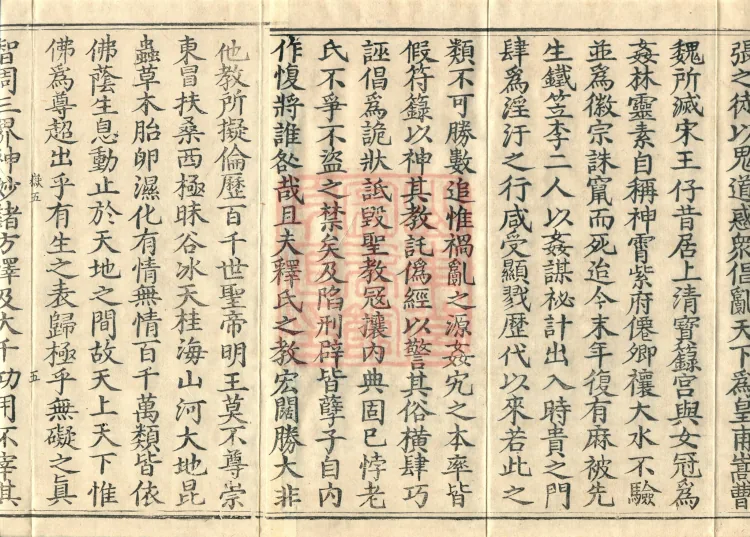 張之徒以鬼道惑衆倡亂天下爲皇甫嵩曹
魏所滅宋王仔昔居上清寶籙宮與女冠爲
姦林靈素自稱神霄紫府僊卿禳大水不驗
並爲徽宗誅竄而死迨今末年復有麻被先
生鐵笠李二人以姦謀祕計出入時貴之門
肆爲淫汙之行咸受顯戮歷代以來若此之
類不可勝數追惟禍亂之源姦宄之本率皆
假符籙以神其教託僞經以警其俗橫肆巧
誣倡爲詭狀詆毀聖教冦攘內典固已悖老
氏不爭不盜之禁矣及陷刑辟皆孽子自內
作愎將誰咎哉且夫釋氏之教宏闊勝大非
他教所擬倫歷百千世聖帝明王莫不尊崇
東冒扶桑西極昧谷冰天桂海山河大地昆
蟲草木胎卵濕化有情無情百千萬類皆依
佛蔭生息動止於天地之間故天上天下惟
佛爲尊超出乎有生之表歸極乎無礙之眞
嶽五
五
智周三界神妙諸方澤及大千功用不宰其